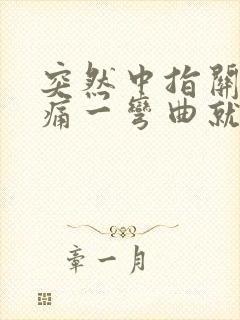 突然中指關
痛一彎曲就
章一月